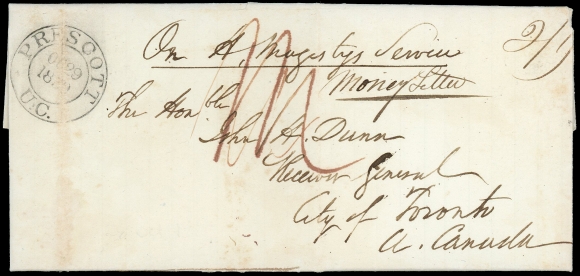 PRESCOTT
U.C.
On H. Magestys Service
2/9
Money Letter
M
The Honble
John H. Dunn
Receiver General
City of Toronto
U. Canada